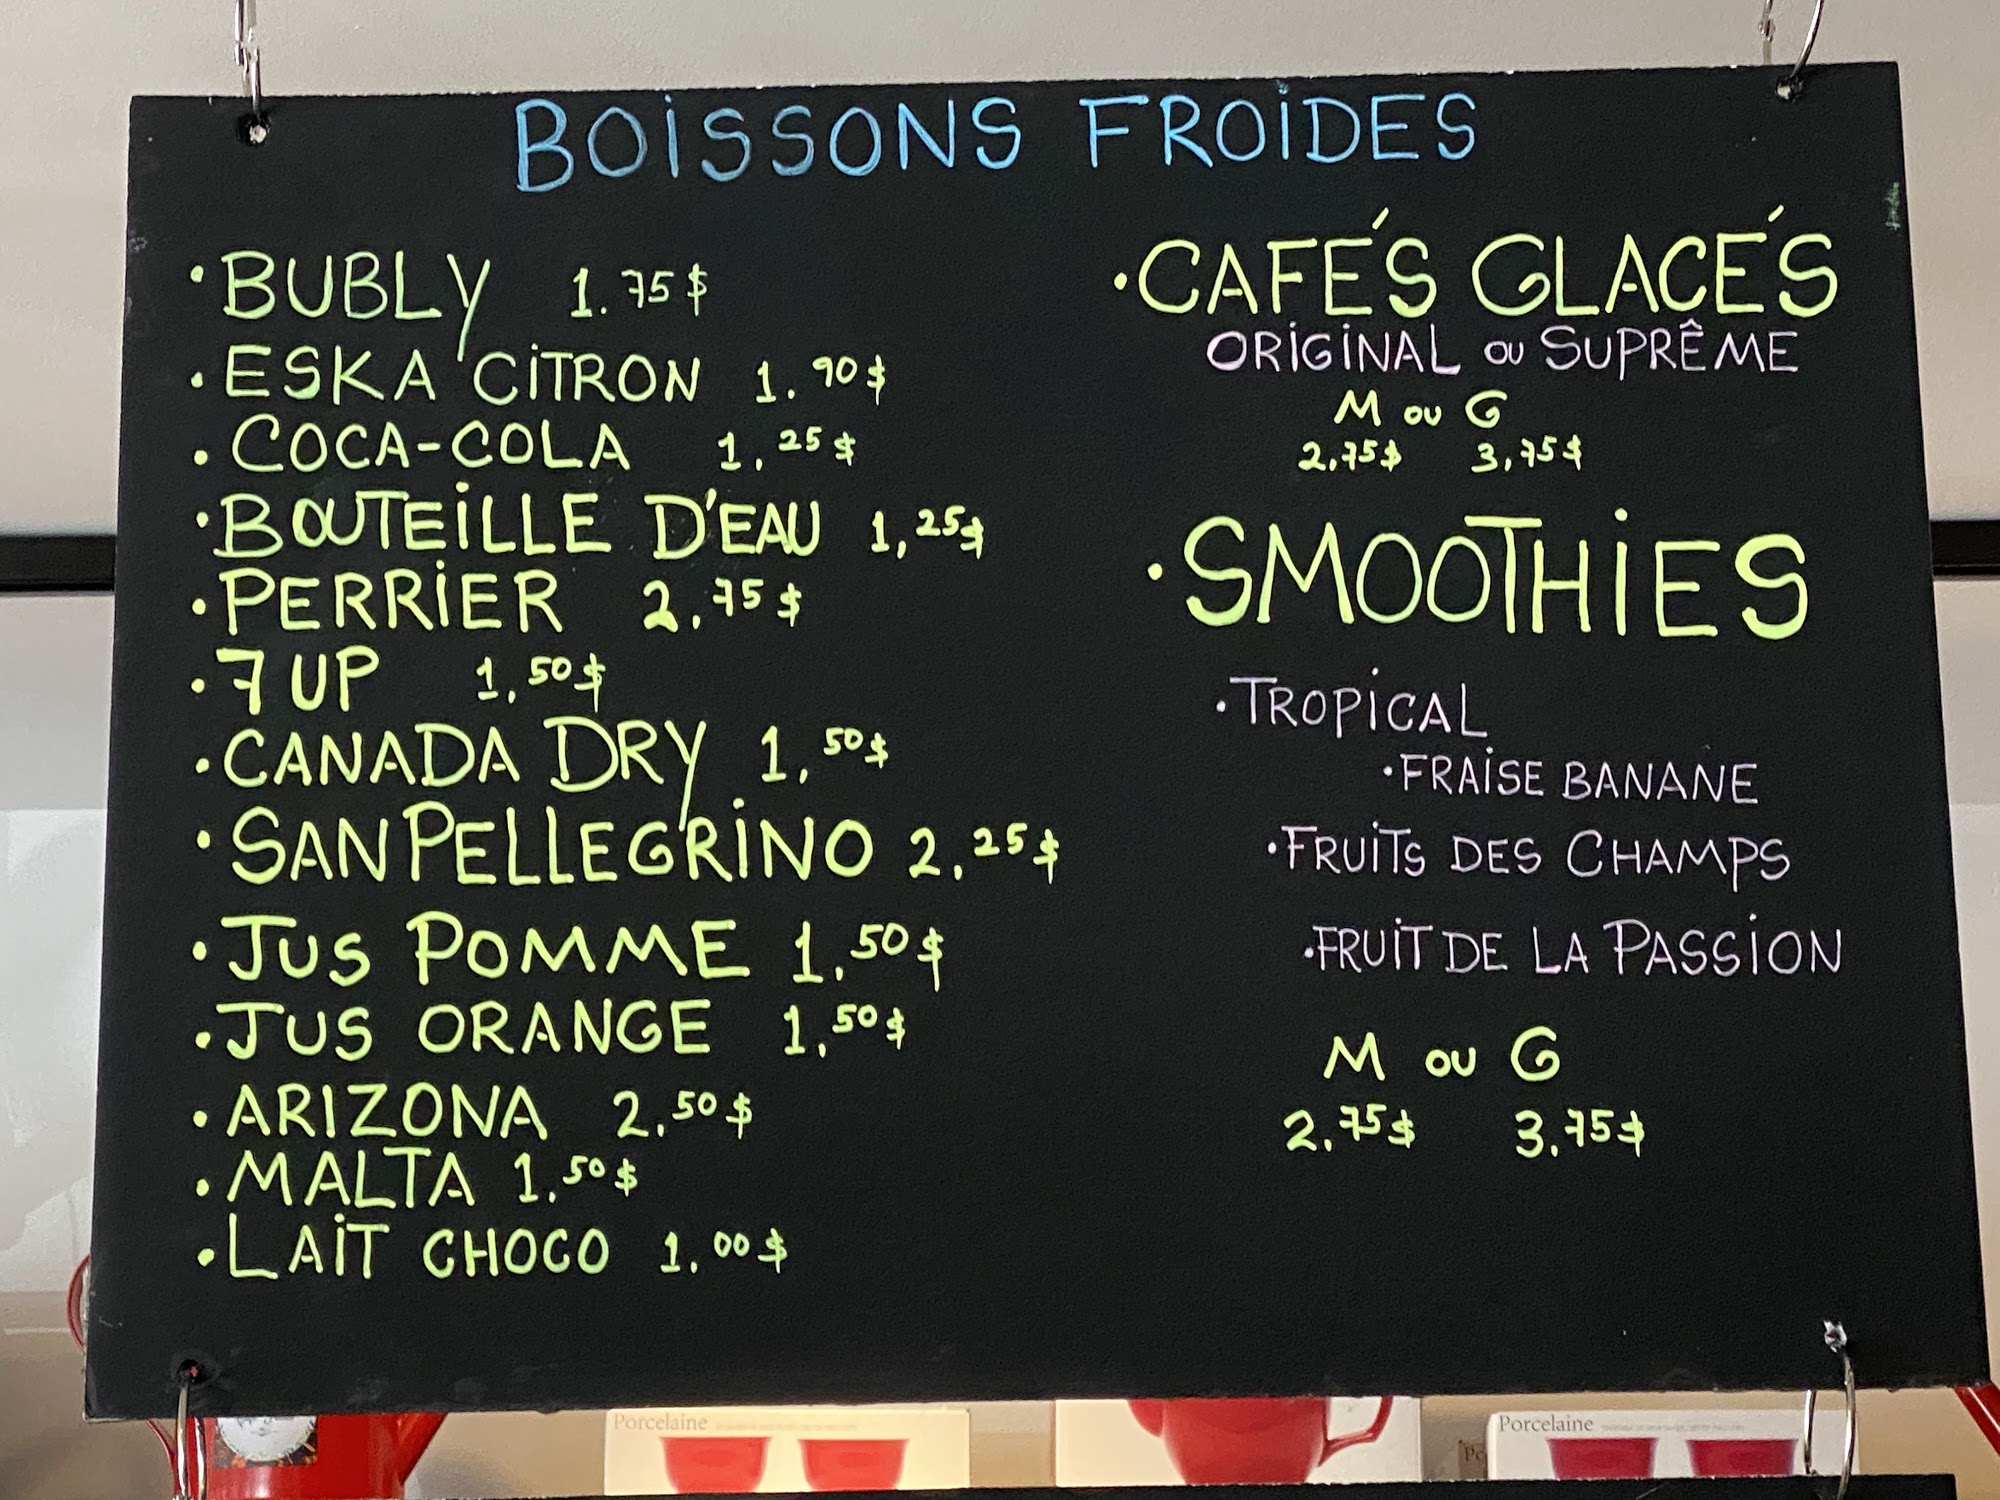 BOISSONS FROIDES
• BUBLY 1.75$
• ESKA CITRON 1.90$
• COCA-COLA 1.25$
• BOUTEILLE D'EAU 1,25$
• PERRIER 2.75$
• 7UP 1.50$
• CANADA DRY 1.50$
• SAN PELLEGRINO 2.25$
• JUS POMME 1.50$
• JUS ORANGE 1.50$
• ARIZONA 2.50$
• MALTA 1.50$
• LAIT CHOCO 1.00$
• CAFÉS GLACÉS
ORIGINAL OU SUPRÊME
M OU G
2.75$ 3,75$
• SMOOTHIES
• TROPICAL
• FRAISE BANANE
• FRUITS DES CHAMPS
• FRUIT DE LA PASSION
M OU G
2.75$ 3.75$
Porcelaine
Porcelaine